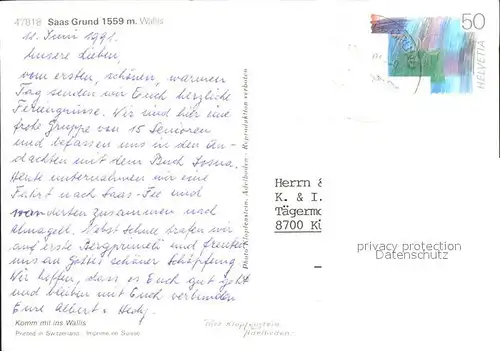 47818 Saas Grund 1559 m. Wallis
11. Juni 1991.
Unsere Lieben,
vom ersten, schönen, warmen
Tag senden wir Euch herzliche
Feriengrüsse. Wir sind hier eine
frohe Gruppe von 15 Senioren
und befassen uns in den An-
dachten mit dem Buch Josua.
Heute unternahmen wir eine
Fahrt nach Saas-Fee und
wanderten zusammen nach
Almagell. Nebst Schnee trafen wir
auf erste Bergprimeli und freuten
uns an Gottes schöner Schöpfung
Wir hoffen, dass es Euch gut geht
und bleiben mit Euch verbunden
Eure Albert + Hedy.
Komm mit ins Wallis
Printed in Switzerland Imprimé en Suisse
Photo Klopfenstein, Adelboden - Reproduktion verboten
50
HELVETIA
Herrn &
K. & I.
Tägermo
8700 Kü
privacy protection
Datenschutz
Foto Klopfenstein
Adelboden